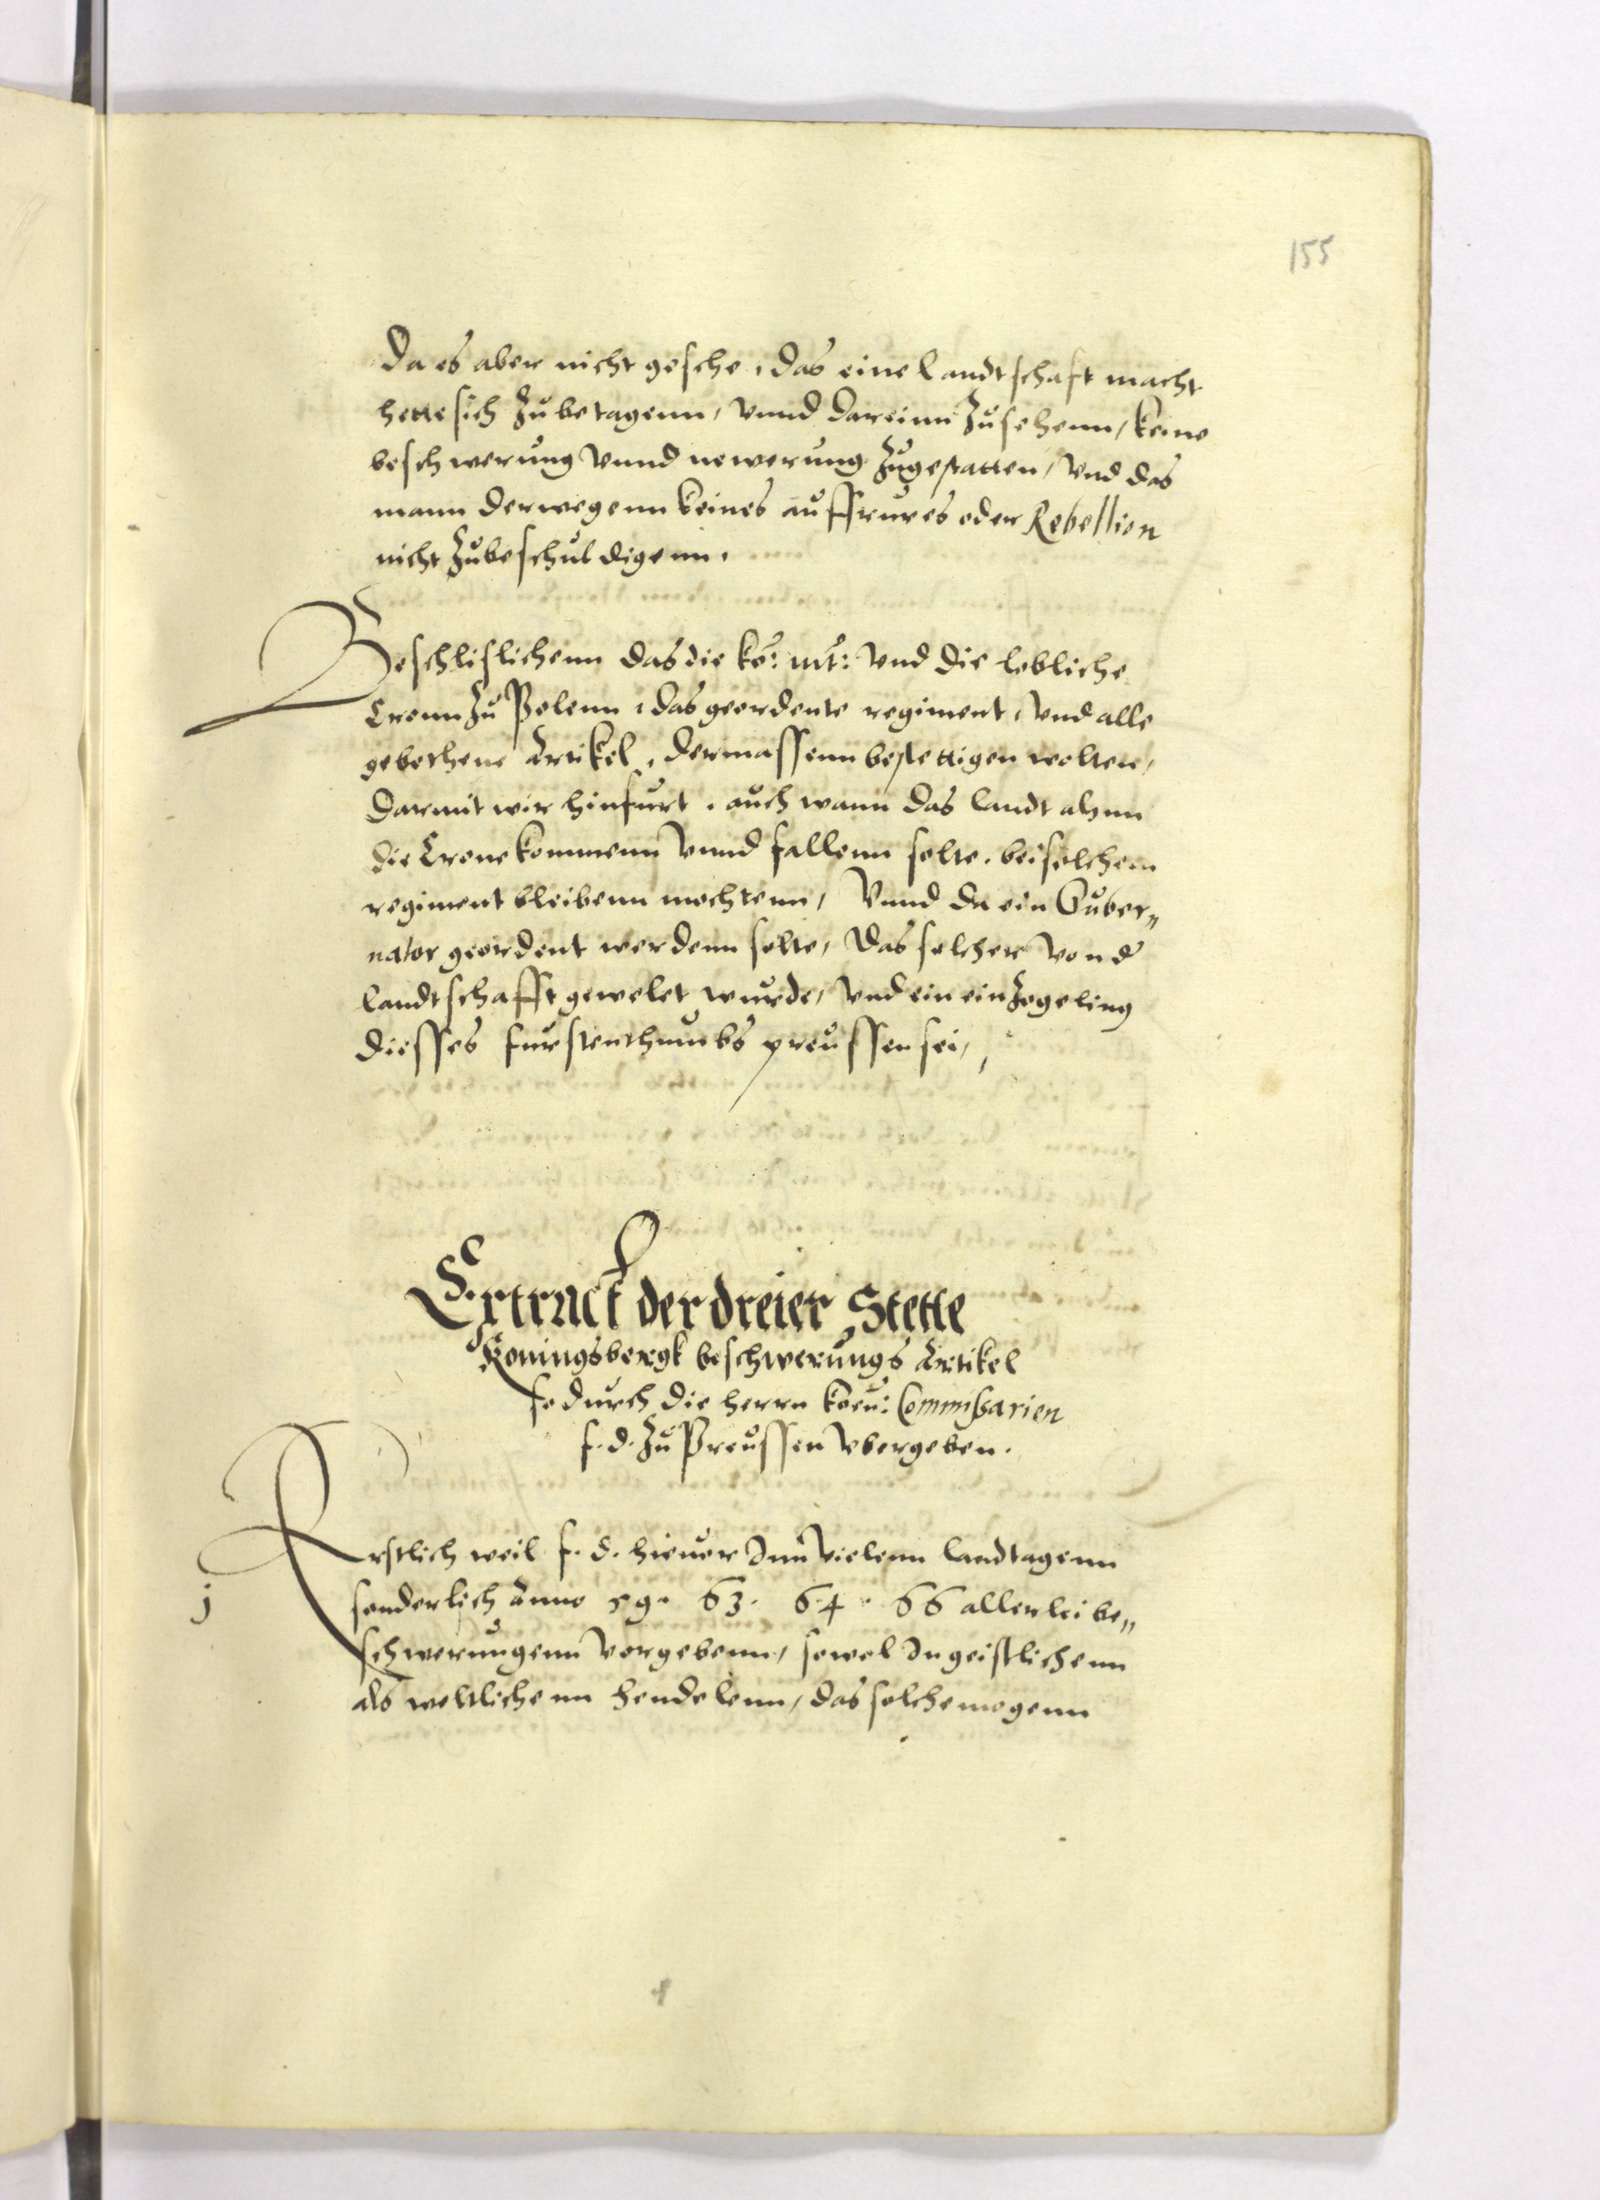 155
Da es aber nicht gesche, das eine Landtschaft macht
hette sich zubetagenn, vnnd dareinn zusehenn, keine
beschwerung vnnd newerung zugestatten, vnd das
mann derwegenn keines auffrures oder Rebellion
nicht zubeschuldigenn.
Beschlislichenn das die kö: mt: vnd die lobliche
Cronn zu Polenn, das geordente regiment, vnd alle
gebethene Artikel, dermassenn bestettigen wolten,
Darmit wir hinfurt, auch wann das landt ahnn
die Crone kommenn vnnd fallenn solte, bei solchem
regiment bleibenn mochtenn, Vnnd da ein Guber„
nator geordent werdenn solte, Das solcher von d
landtschafft gewelet wurde, vnd ein einzogeling
diesses furstenthumbs preussen sei,
Extract der dreier Stette
Koningsbergk beschwerungs Artikel
so durch die herrn koen: Commissarien
f. d. zu Preussen vbergeben.
j
Erstlich weil f. d. hieuor Inn vielenn landtagenn
sonderlich Anno 59. 63. 64. 66 allerlei be„
schwerungenn vorgebenn, sowol In geistlichenn
als weltlichenn hendelenn, das solche mogenn